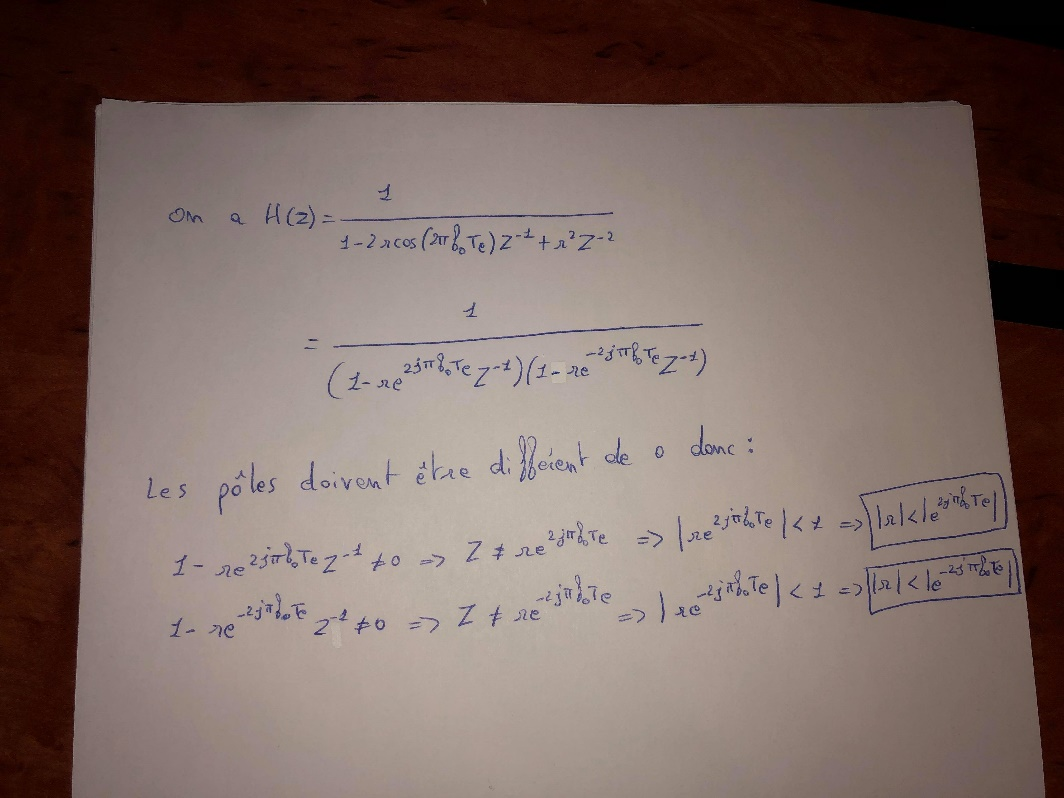 On a H(z) = 1 / (1-2rcos(2πf₀Te)Z⁻¹ + r²Z⁻²)
= 1 / ((1-re^{2jπf₀Te}Z⁻¹)(1-re^{-2jπf₀Te}Z⁻¹))
Les pôles doivent être différent de 0 donc :
1- re^{2jπf₀Te}Z⁻¹ ≠ 0 => Z ≠ re^{2jπf₀Te} => |re^{2jπf₀Te}| < 1 => |r| < |e^{2jπf₀Te}|
1- re^{-2jπf₀Te} Z⁻¹ ≠ 0 => Z ≠ re^{-2jπf₀Te} => |re^{-2jπf₀Te}| < 1 => |r| < |e^{-2jπf₀Te}|